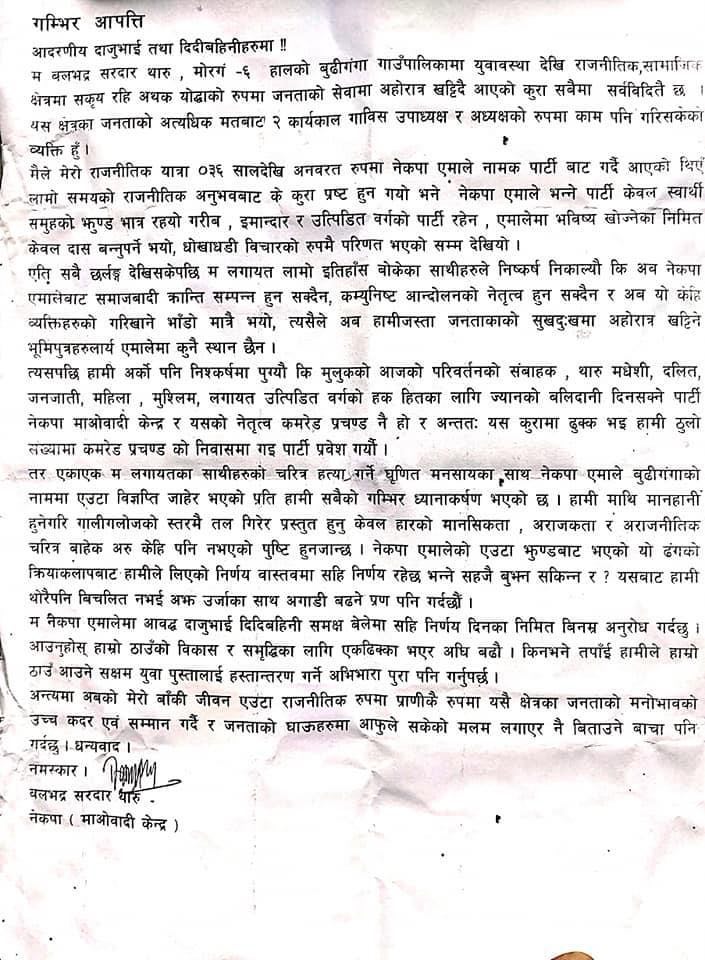 गम्भिर आपत्ति
आदरणीय दाजुभाई तथा दिदीबहिनीहरुमा !!
म बलभद्र सरदार थारु , मोरगं -६ हालको बुढीगंगा गाउँपालिकामा युवावस्था देखि राजनीतिक,सामाजिक
क्षेत्रमा सकृय रहि अथक योद्धाको रुपमा जनताको सेवामा अहोरात्र खट्टिदै आएको कुरा सबैमा सर्वविदितै छ ।
यस क्षेत्रका जनताको अत्यधिक मतबाट २ कार्यकाल गाविस उपाध्यक्ष र अध्यक्षको रुपमा काम पनि गरिसकेको
व्यक्ति हुँ ।
मैले मेरो राजनीतिक यात्रा ०३६ सालदेखि अनवरत रुपमा नेकपा एमाले नामक पार्टी बाट गर्दै आएको थिएँ
लामो समयको राजनीतिक अनुभवबाट के कुरा प्रष्ट हुन गयो भने नेकपा एमाले भन्ने पार्टी केवल स्वार्थी
समुहको झुण्ड भात्र रहयो गरीब , इमान्दार र उत्पिडित वर्गको पार्टी रहेन , एमालेमा भविष्य खोज्नेका निमित
केवल दास बन्नुपर्ने भयो, धोखाधडी विचारको रुपमै परिणत भएको सम्म देखियो ।
एति सबै छर्लङ्ग देखिसकेपछि म लगायत लामो इतिहाँस बोकेका साथीहरुले निष्कर्ष निकाल्यौ कि अब नेकपा
एमालेबाट समाजबादी क्रान्ति सम्पन्न हुन सक्दैन, कम्युनिष्ट आन्दोलनको नेतृत्व हुन सक्दैन र अब यो केहि
व्यक्तिहरुको गरिखाने भाँडो मात्रै भयो, त्यसैले अब हामीजस्ता जनताकाको सुखदुःखमा अहोरात्र खट्टिने
भूमिपुत्रहरुलार्य एमालेमा कुनै स्थान छैन ।
त्यसपछि हामी अर्को पनि निश्कर्षमा पुग्यौ कि मुलुकको आजको परिवर्तनको संबाहक , थारु मधेशी, दलित,
जनजाती, महिला , मुश्लिम, लगायत उत्पिडित वर्गको हक हितका लागि ज्यानको बलिदानी दिनसक्ने पार्टी
नेकपा माओवादी केन्द्र र यसको नेतृत्व कमरेड प्रचण्ड नै हो र अन्ततः यस कुरामा ढुक्क भइ हामी ठुलो
संख्यामा कमरेड प्रचण्ड को निवासमा गइ पार्टी प्रवेश गर्यौ ।
तर एकाएक म लगायतका साथीहरुको चरित्र हत्या गर्ने घृणित मनसायका साथ नेकपा एमाले बुढीगंगाको
नाममा एउटा विज्ञप्ति जाहेर भएको प्रति हामी सबैको गम्भिर ध्यानाकर्षण भएको छ । हामी माथि मानहानी
हुनेगरि गालीगलोजको स्तरमै तल गिरेर प्रस्तुत हुनु केवल हारको मानसिकता , अराजकता र अराजनीतिक
चरित्र बाहेक अरु केहि पनि नभएको पुष्टि हुनजान्छ । नेकपा एमालेको एउटा झुण्डबाट भएको यो ढंगको
क्रियाकलापबाट हामीले लिएको निर्णय वास्तवमा सहि निर्णय रहेछ भन्ने सहजै बुझ्न सकिन्न र ? यसबाट हामी
थोरैपनि बिचलित नभई अझ उर्जाका साथ अगाडी बढने प्रण पनि गर्दछौं ।
म नेकपा एमालेमा आवद्ध दाजुभाई दिदिबहिनी समक्ष बेलेमा सहि निर्णय दिनका निमित बिनम्र अनुरोध गर्दछु ।
आउनुहोस् हाम्रो ठाउँको विकास र समृद्धिका लागि एकढिक्का भएर अघि बढौ । किनभने तपाईं हामीले हाम्रो
ठाउँ आउने सक्षम युवा पुस्तालाई हस्तान्तरण गर्ने अभिभारा पुरा पनि गर्नुपर्छ ।
अन्त्यमा अबको मेरो बाँकी जीवन एउटा राजनीतिक रुपमा प्राणीकै रुपमा यसै क्षेत्रका जनताको मनोभावको
उच्च कदर एवं सम्मान गर्दै र जनताको घाऊहरुमा आफुले सकेको मलम लगाएर नै बिताउने बाचा पनि
गर्दछु । धन्यवाद ।
नमस्कार ।
बलभद्र सरदार थारु
नेकपा ( माओवादी केन्द्र )